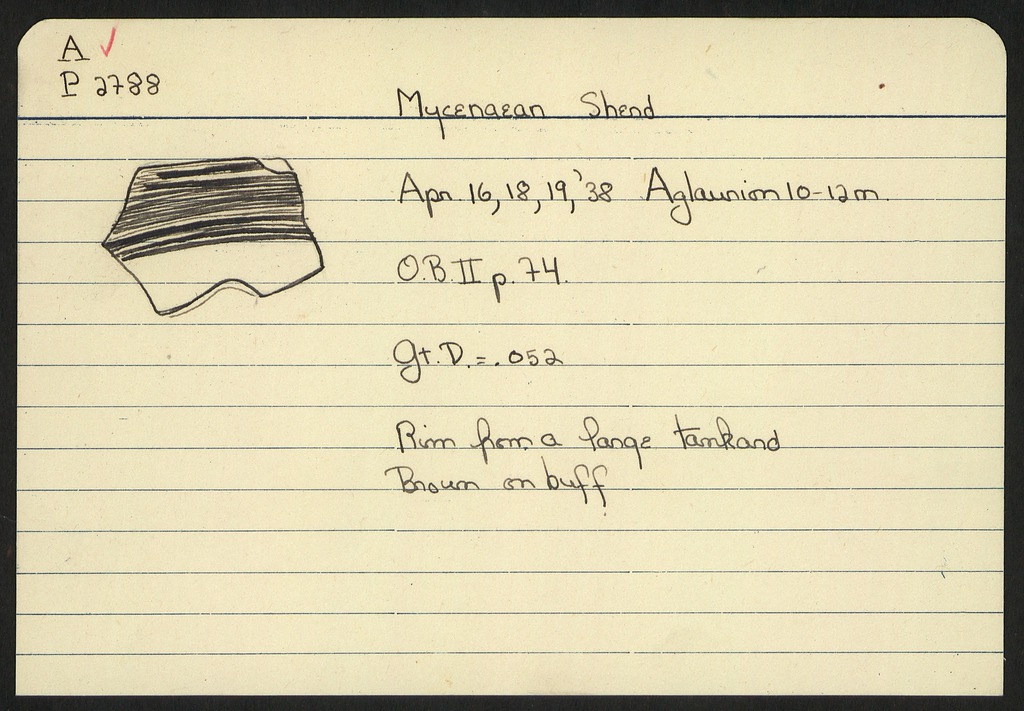 A ✓
P 2788
Mycenaean Sherd
Apr. 16, 18, 19, '38 Aglaurion 10-12m.
O.B. II p. 74.
Gt. D. = .052
Rim from a large tankard
Brown on buff